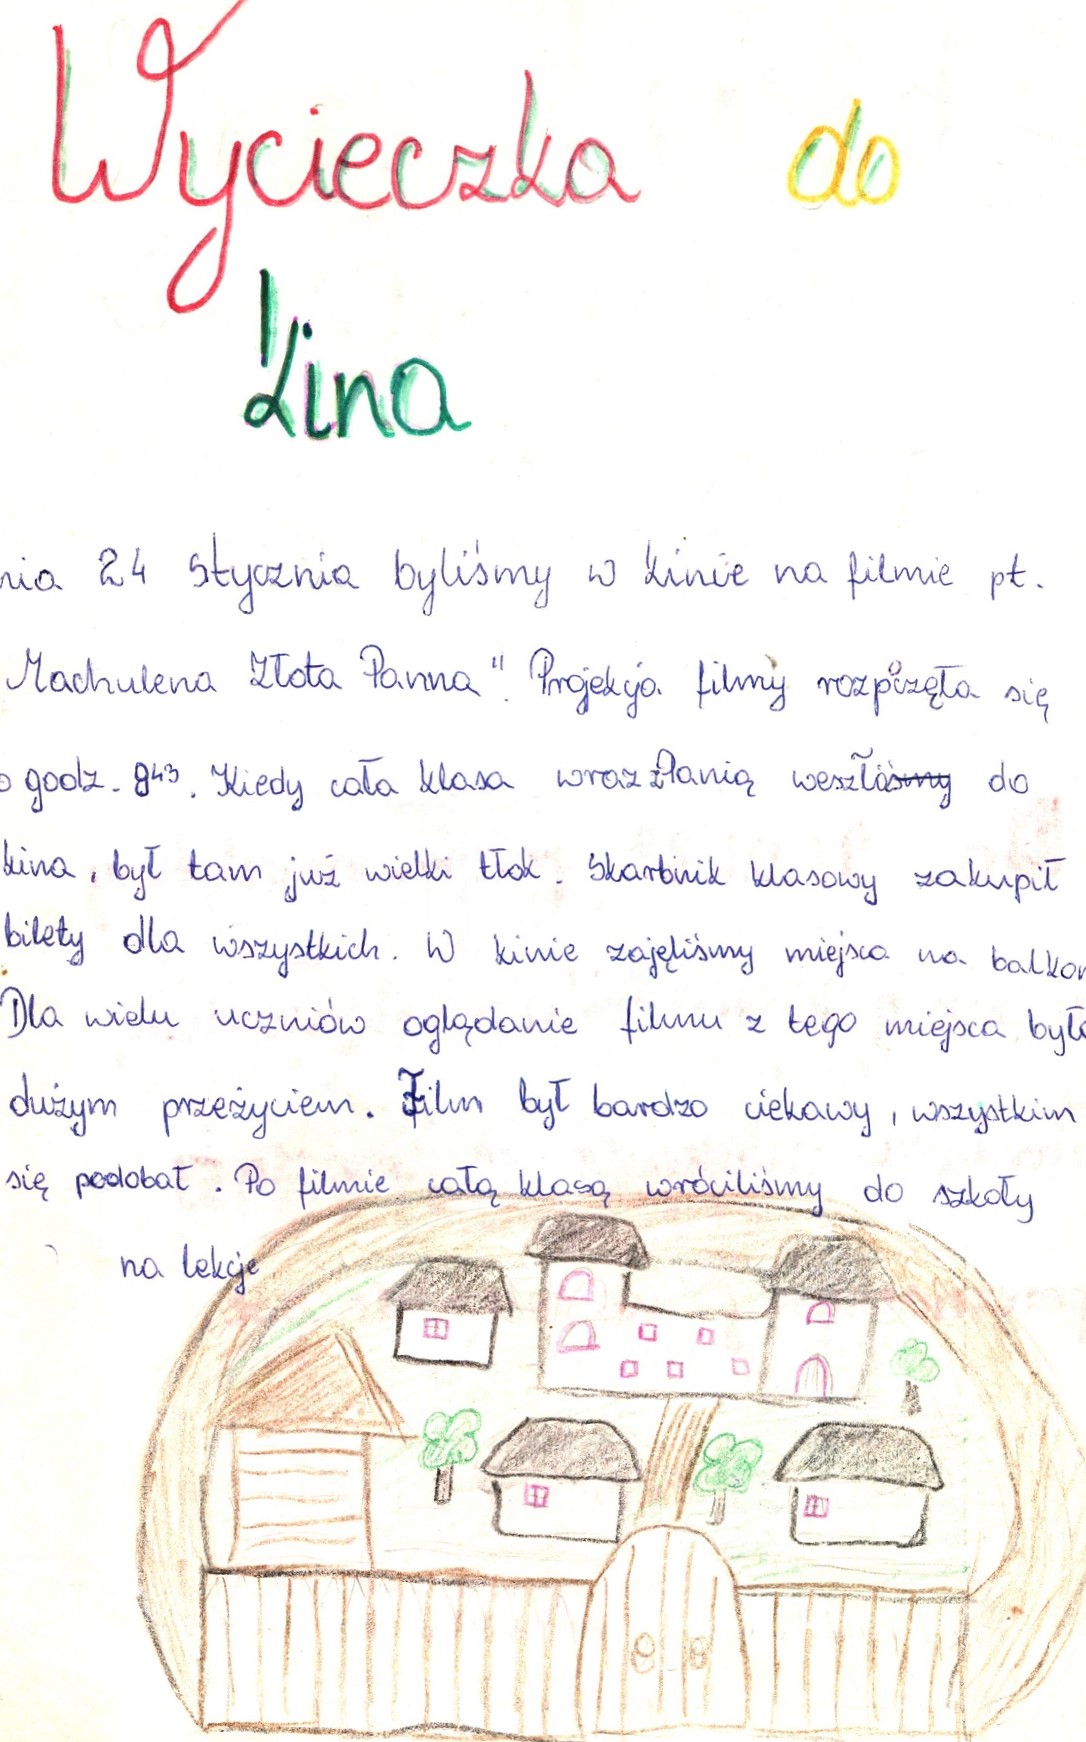 Wycieczka do
kina
nia 24 stycznia byliśmy w kinie na filmie pt.
Machulena Złota Panna". Projekcja filmu rozpoczęła się
o godz. 9⁴³. Kiedy cała klasa wraz z Panią weszła do
kina, był tam już wielki tłok. Skarbnik klasowy zakupił
bilety dla wszystkich. W kinie zajęliśmy miejsca na balkon
Dla wielu uczniów oglądanie filmu z tego miejsca było
dużym przeżyciem. Film był bardzo ciekawy, wszystkim
się podobał. Po filmie całą klasą wróciliśmy do szkoły
na lekcje